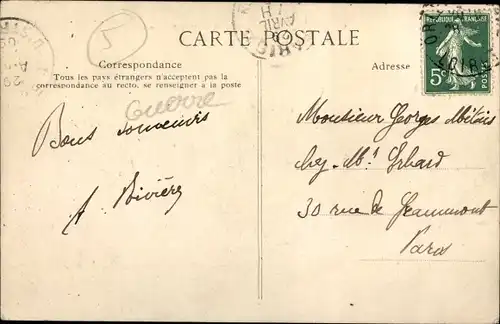 CARTE POSTALE
Correspondance
Tous les pays étrangers n'acceptent pas la
correspondance au recto, se renseigner à la poste
Adresse
5
Guerre
RÉPUBLIQUE FRANÇAISE
5c
POSTES
PARIS
AVRIL
Bons souvenirs
A. Rivière
Monsieur Georges
chez Mr
30 rue de Jeaumont
Paris